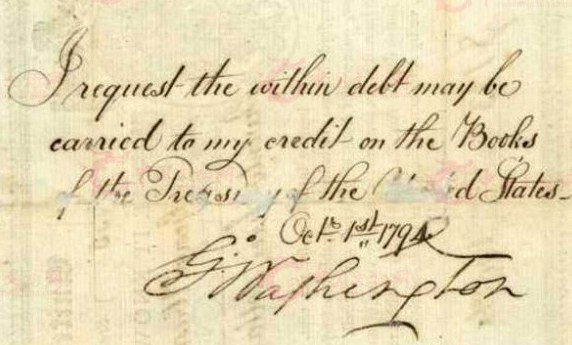 I request the within debt may be
carried to my credit on the Books
of the Treasury of the United States.
Octr. 1st 1794
G:Washington